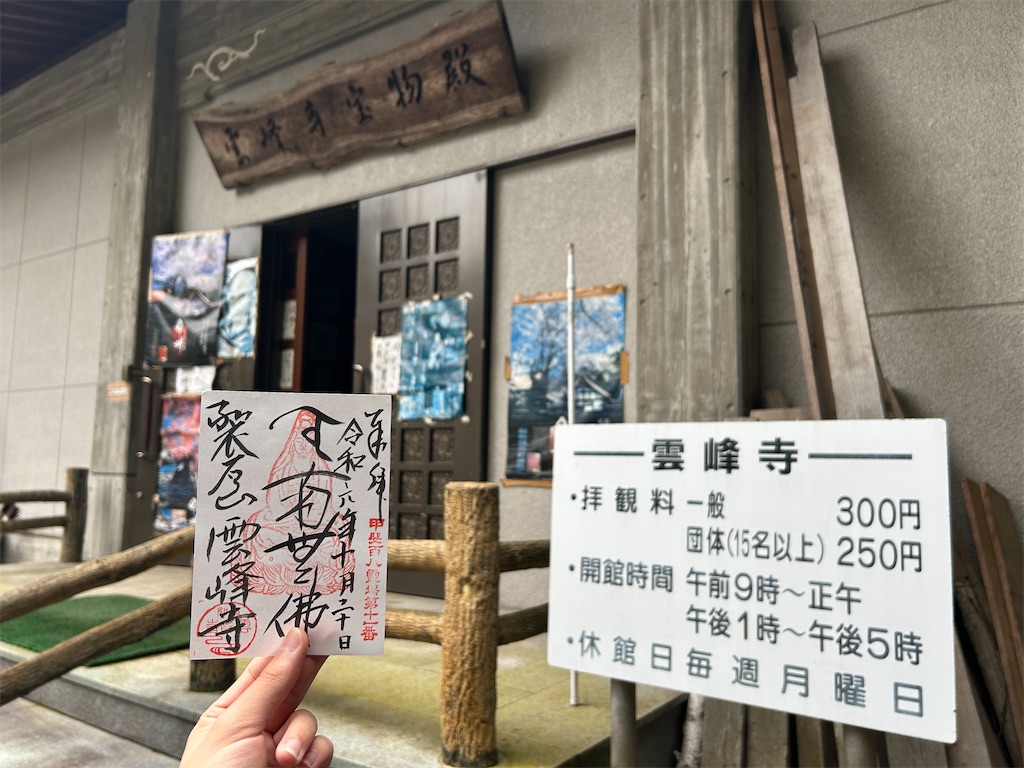 雲峰寺宝物殿
奉拝
令和六年十月二十日
甲斐百八霊場第十一番
南無佛
裂石山
雲峰寺
雲峰寺
・拝観料 一般 300円
団体(15名以上) 250円
・開館時間 午前9時〜正午
午後1時〜午後5時
・休館日毎週月曜日